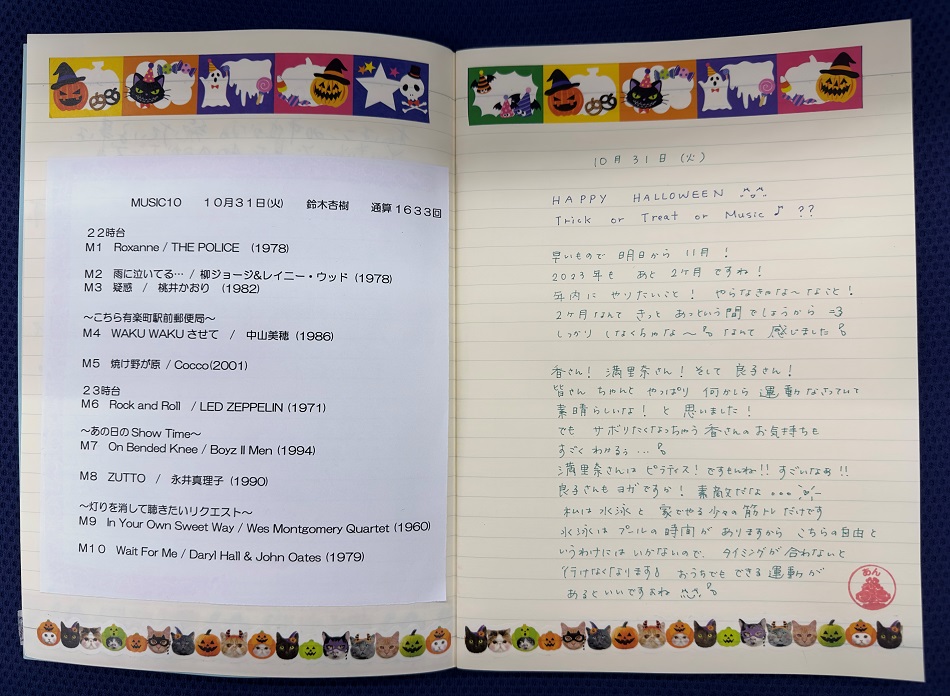 MUSIC10　１０月３１日(火)　鈴木杏樹　通算１６３３回
２２時台
M１ Roxanne / THE POLICE (1978)
M２ 雨に泣いてる… / 柳ジョージ&レイニー・ウッド (1978)
M３ 疑惑 / 桃井かおり (1982)
～こちら有楽町駅前郵便局～
M４ WAKU WAKU させて / 中山美穂 (1986)
M５ 焼け野が原 / Cocco(2001)
２３時台
M６ Rock and Roll / LED ZEPPELIN (1971)
～あの日の Show Time～
M７ On Bended Knee / Boyz II Men (1994)
M８ ZUTTO / 永井真理子 (1990)
～灯りを消して聴きたいリクエスト～
M９ In Your Own Sweet Way / Wes Montgomery Quartet (1960)
M１０ Wait For Me / Daryl Hall & John Oates (1979)
10月31日(火)
HAPPY HALLOWEEN
Trick or Treat or Music♪ ??
早いもので 明日から 11月！
2023年も あと 2ケ月 ですね！
年内に やりたいこと！ やらなきゃな〜なこと！
2ケ月なんて きっと あっという間でしょうから
しっかり しなくちゃな〜 なんて 感じました
香さん！ 満里奈さん！ そして 良子さん！
皆さん ちゃんと やっぱり 何かしら 運動なさっていて
素晴らしいな！ と 思いました！
でも サボりたくなっちゃう 香さんのお気持ちも
すごく わかるぅ …
満里奈さんは ピラティス！ですもんね!! すごいなぁ!!
良子さんも ヨガですか！ 素敵だなぁ 。。。
私は 水泳と 家でやる少々の筋トレだけです
水泳は プールの時間が ありますから こちらの自由と
いうわけには いかないので、 タイミングが合わないと
行けなくなります おうちでも できる 運動が
あると いいですよね
あん